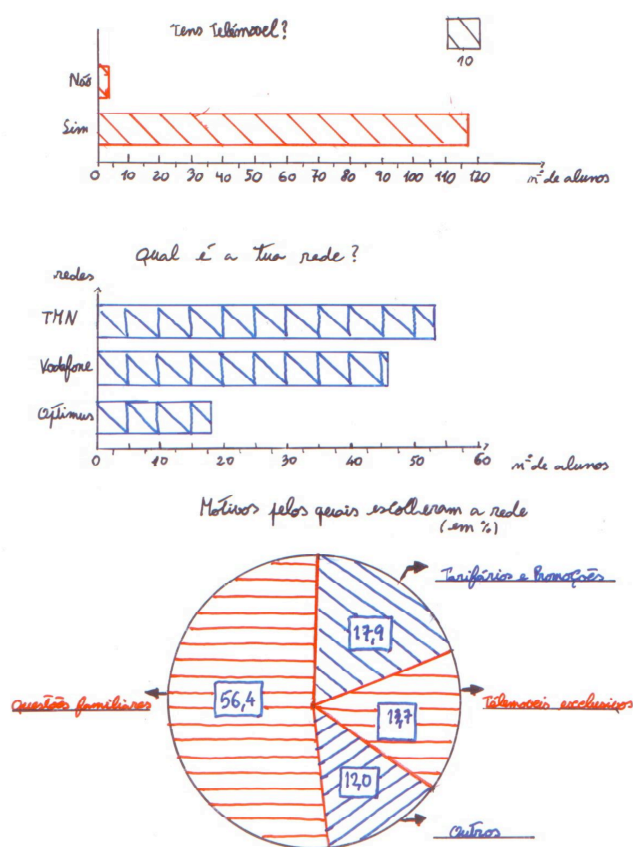 Tens Telémovel?
10
Não
Sim
0 10 20 30 40 50 60 70 80 90 100 110 120
nº de alunos
Qual é a tua rede?
redes
TMN
Vodafone
Optimus
0 10 20 30 40 50 60
nº de alunos
Motivos pelos quais escolheram a rede
(em %)
Tarifários e Promoções
17,9
questões familiares
56,4
13,7
Télemoveis exclusivos
12,0
Outros